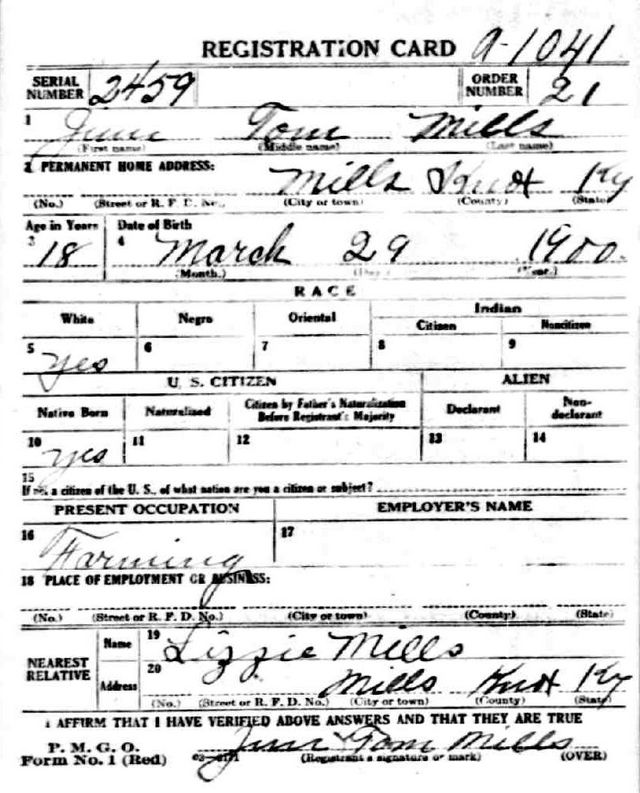 REGISTRATION CARD A-1041
SERIAL NUMBER 2459 ORDER NUMBER 21
1 Jim Tom Mills
(First name) (Middle name) (Last name)
2 PERMANENT HOME ADDRESS: Mills Knox Ky
(No.) (Street or R. F. D. No.) (City or town) (County) (State)
Age in Years Date of Birth
3 18 4 March 29 1900.
(Month.) (Day.) (Year.)
RACE
White Negro Oriental Indian
Citizen Noncitizen
5 yes 6 7 8 9
U. S. CITIZEN ALIEN
Native Born Naturalized Citizen by Father's Naturalization Before Registrant's Majority Declarant Non-declarant
10 yes 11 12 13 14
15
If not a citizen of the U. S., of what nation are you a citizen or subject?
PRESENT OCCUPATION EMPLOYER'S NAME
16 Farming 17
18 PLACE OF EMPLOYMENT OR BUSINESS:
(No.) (Street or R. F. D. No.) (City or town) (County) (State)
NEAREST RELATIVE Name 19 Lizzie Mills
Address 20 Mills Knox Ky
(No.) (Street or R. F. D. No.) (City or town) (County) (State)
I AFFIRM THAT I HAVE VERIFIED ABOVE ANSWERS AND THAT THEY ARE TRUE
P. M. G. O. Jim Tom Mills
Form No. 1 (Red) (Registrant's signature or mark) (OVER)